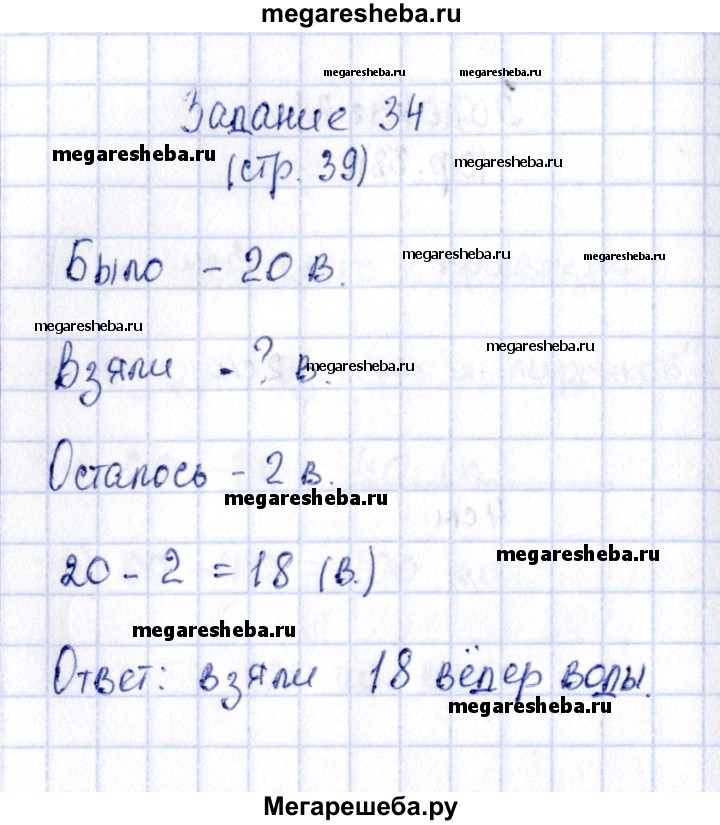 megaresheba.ru
megaresheba.ru megaresheba.ru
Задание 34
megaresheba.ru
(стр. 39)
megaresheba.ru
Было - 20 в.
megaresheba.ru megaresheba.ru
megaresheba.ru
Взяли - ? в.
megaresheba.ru
megaresheba.ru
Осталось - 2 в.
megaresheba.ru
20 - 2 = 18 (в.)
megaresheba.ru
megaresheba.ru
Ответ: взяли 18 вёдер воды.
megaresheba.ru
Мегарешеба.ру